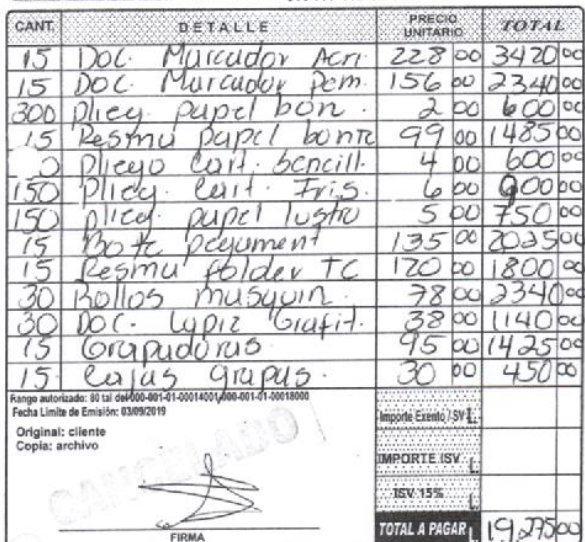 CANT. DETALLE PRECIO UNITARIO TOTAL
15 Doc. Marcador Acri 228 00 3420 00
15 Doc. Marcador Pem. 156 00 2340 00
300 plieg. papel bon. 2 00 600 00
15 Resma papel bonte 99 00 1485 00
0 Pliego Cart. sencill. 4 00 600 00
150 Plieg. Cart. Iris. 6 00 900 00
150 plieg. papel lustro 5 00 750 00
15 Bote pegument 135 00 2025 00
15 Resma folder TC 120 00 1800 00
30 Rollos musquin. 78 00 2340 00
30 Doc. Lapiz Grafit. 38 00 1140 00
15 Grapadoras 95 00 1425 00
15 Cajas grapas. 30 00 450 00
Rango autorizado: 80 tal del 000-001-01-00014001 000-001-01-00018000
Fecha Limite de Emisión: 03/09/2019
Original: cliente
Copia: archivo
CANCELADO
FIRMA
Importe Exento / SV L.
IMPORTE ISV L.
ISV 15% L.
TOTAL A PAGAR L. 19,275 00